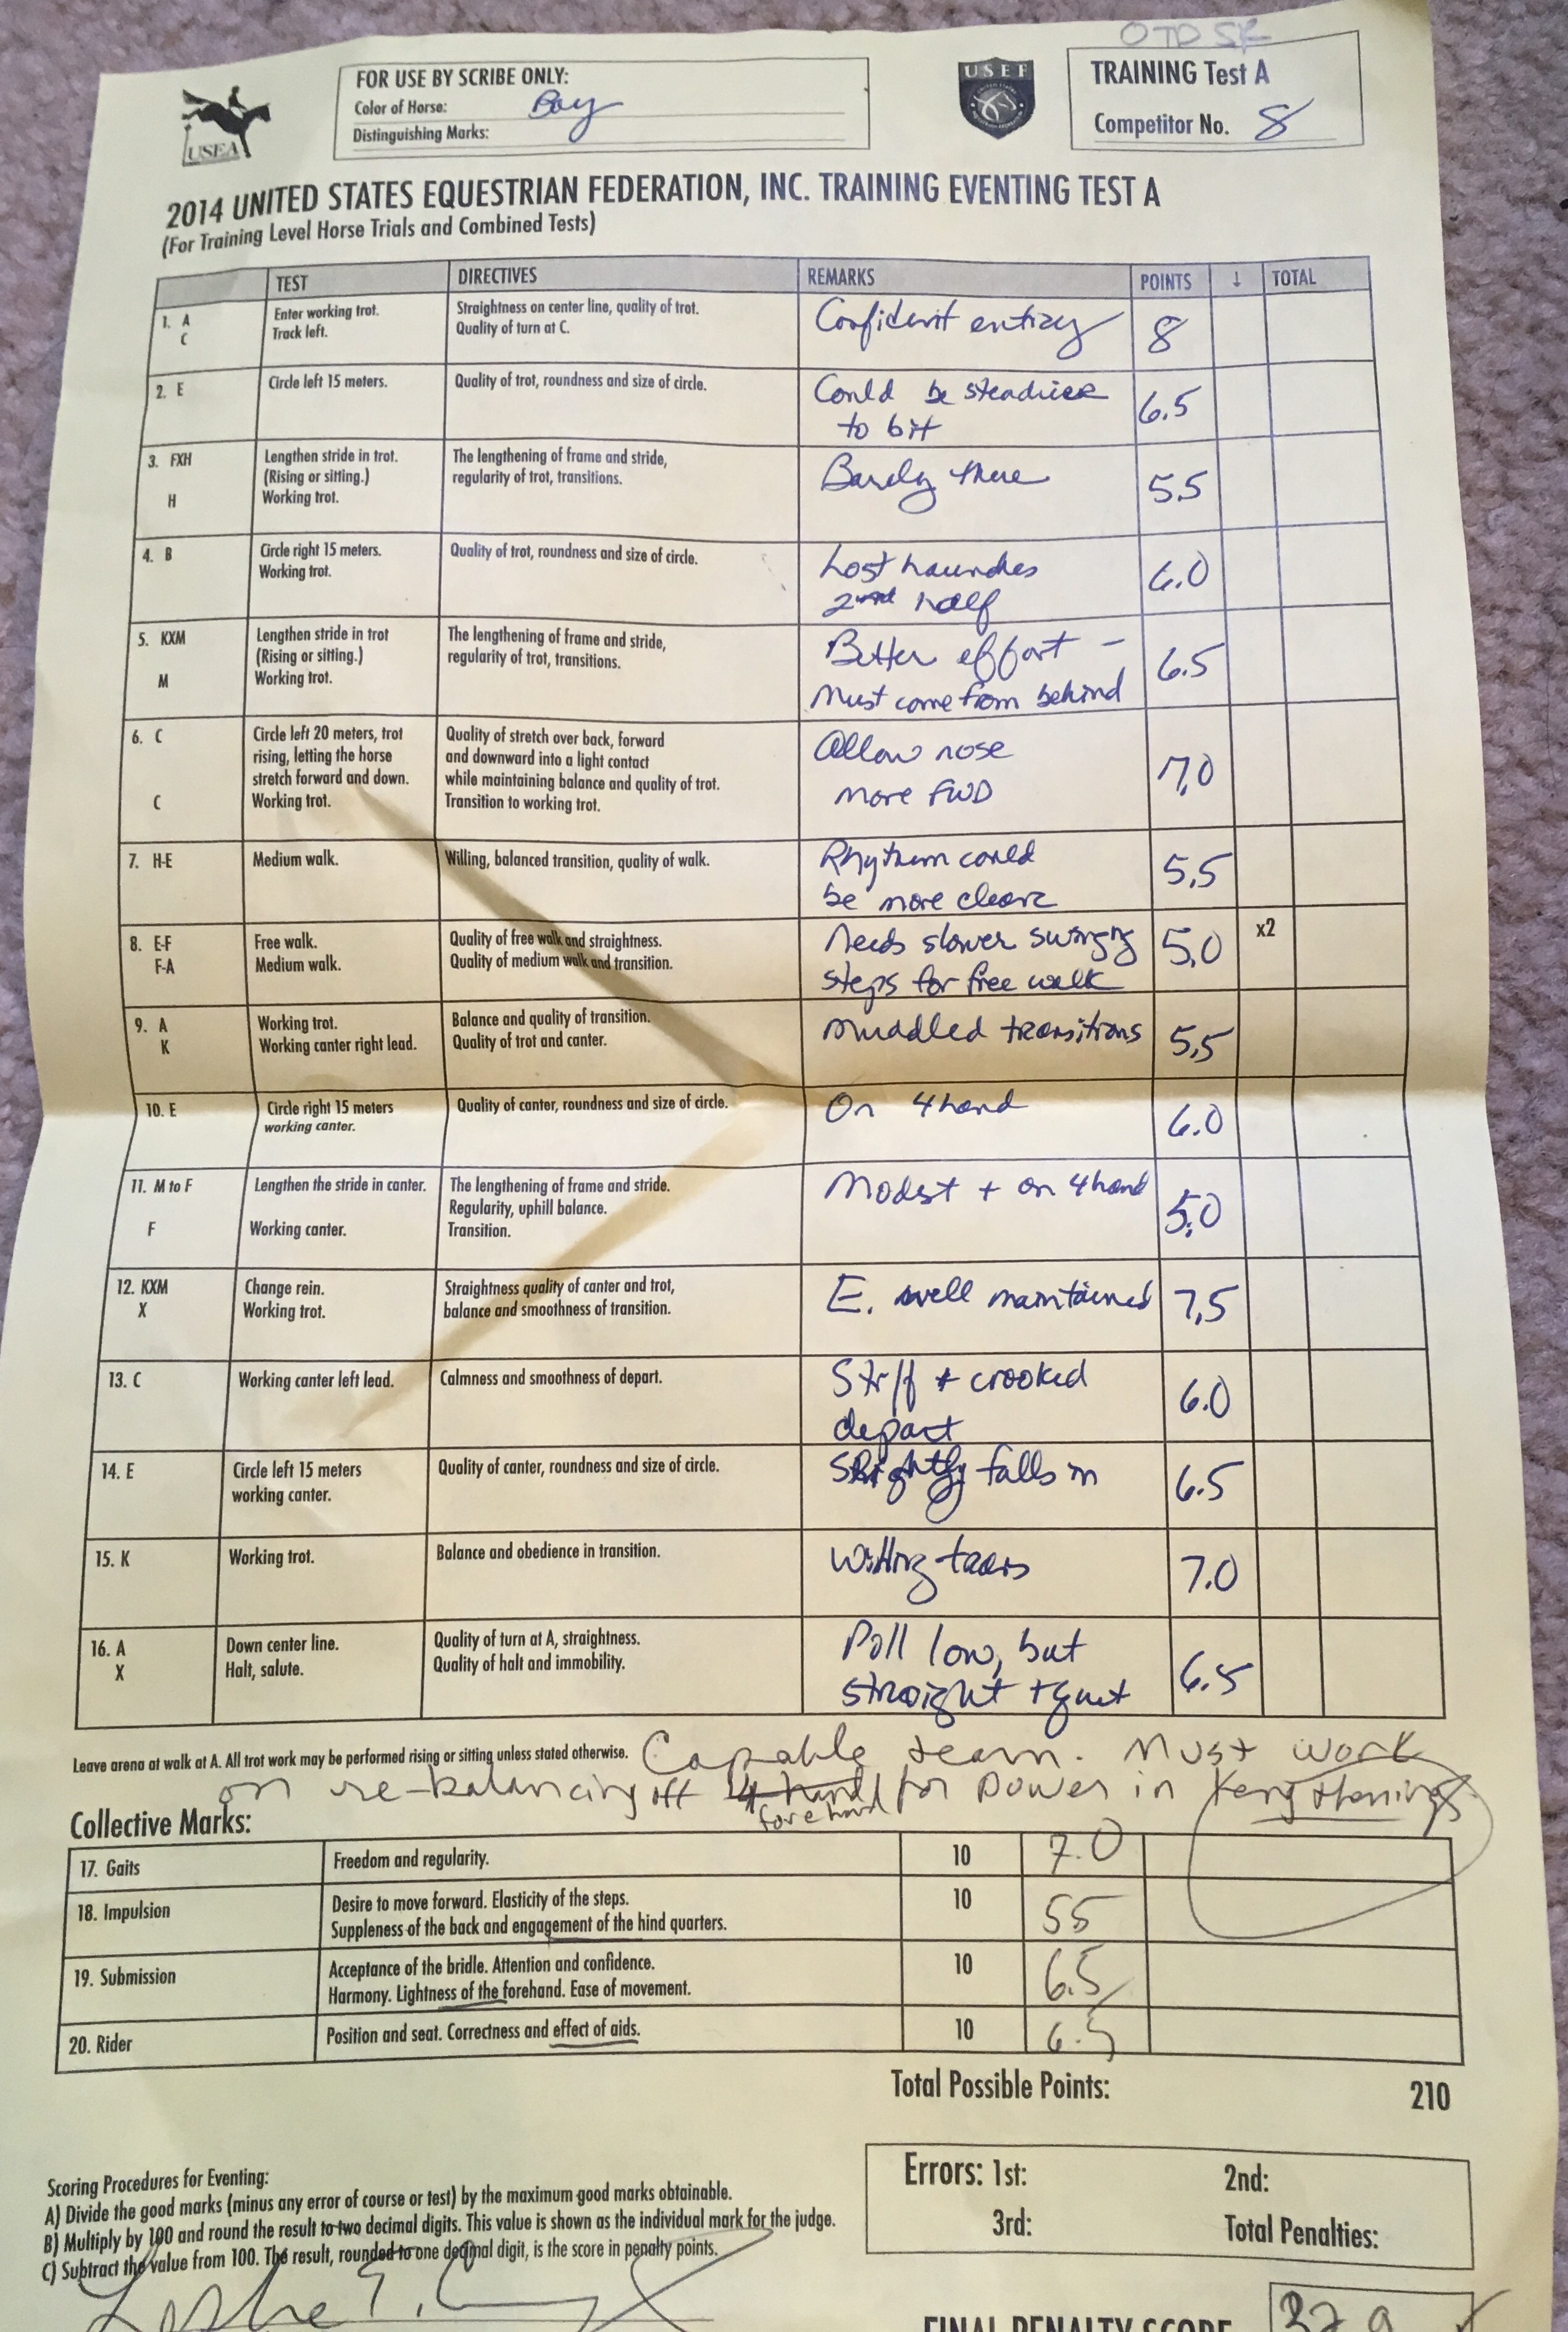 OTD SR
USEA
FOR USE BY SCRIBE ONLY:
Color of Horse: Bay
Distinguishing Marks:
USEF
TRAINING Test A
Competitor No. 8
2014 UNITED STATES EQUESTRIAN FEDERATION, INC. TRAINING EVENTING TEST A
(For Training Level Horse Trials and Combined Tests)
TEST DIRECTIVES REMARKS POINTS ↓ TOTAL
1. A Enter working trot. Straightness on center line, quality of trot. Confident entry 8
C Track left. Quality of turn at C.
2. E Circle left 15 meters. Quality of trot, roundness and size of circle. Could be steadier 6.5
to bit
3. FXH Lengthen stride in trot. The lengthening of frame and stride, Barely there 5.5
(Rising or sitting.) regularity of trot, transitions.
H Working trot.
4. B Circle right 15 meters. Quality of trot, roundness and size of circle. Lost haunches 6.0
Working trot. 2nd half
5. KXM Lengthen stride in trot The lengthening of frame and stride, Better effort - 6.5
(Rising or sitting.) regularity of trot, transitions.
M Working trot. Must come from behind
6. C Circle left 20 meters, trot Quality of stretch over back, forward Allow nose 7.0
rising, letting the horse and downward into a light contact
stretch forward and down. while maintaining balance and quality of trot. more FWD
C Working trot. Transition to working trot.
7. H-E Medium walk. Willing, balanced transition, quality of walk. Rhythum could 5.5
be more clear
8. E-F Free walk. Quality of free walk and straightness. Needs slower swinging 5.0 x2
F-A Medium walk. Quality of medium walk and transition. steps for free walk
9. A Working trot. Balance and quality of transition. Muddled transitions 5.5
K Working canter right lead. Quality of trot and canter.
10. E Circle right 15 meters Quality of canter, roundness and size of circle. On 4hand 6.0
working canter.
11. M to F Lengthen the stride in canter. The lengthening of frame and stride. Modest + on 4hand 5.0
Regularity, uphill balance.
F Working canter. Transition.
12. KXM Change rein. Straightness quality of canter and trot, E. well maintained 7.5
X Working trot. balance and smoothness of transition.
13. C Working canter left lead. Calmness and smoothness of depart. Stiff + crooked 6.0
depart
14. E Circle left 15 meters Quality of canter, roundness and size of circle. Slightly falls in 6.5
working canter.
15. K Working trot. Balance and obedience in transition. Willing trans 7.0
16. A Down center line. Quality of turn at A, straightness. Poll low, but 6.5
X Halt, salute. Quality of halt and immobility. straight + quiet
Leave arena at walk at A. All trot work may be performed rising or sitting unless stated otherwise. Capable team. Must work
on re-balancing off 4hand for power in lengthenings
forehand
Collective Marks:
17. Gaits Freedom and regularity. 10 7.0
18. Impulsion Desire to move forward. Elasticity of the steps. 10 55
Suppleness of the back and engagement of the hind quarters.
19. Submission Acceptance of the bridle. Attention and confidence. 10 6.5
Harmony. Lightness of the forehand. Ease of movement.
20. Rider Position and seat. Correctness and effect of aids. 10 6.5
Total Possible Points: 210
Scoring Procedures for Eventing:
A) Divide the good marks (minus any error of course or test) by the maximum good marks obtainable.
B) Multiply by 100 and round the result to two decimal digits. This value is shown as the individual mark for the judge.
C) Subtract the value from 100. The result, rounded to one decimal digit, is the score in penalty points.
Errors: 1st: 2nd:
3rd: Total Penalties:
FINAL PENALTY SCORE 37.9